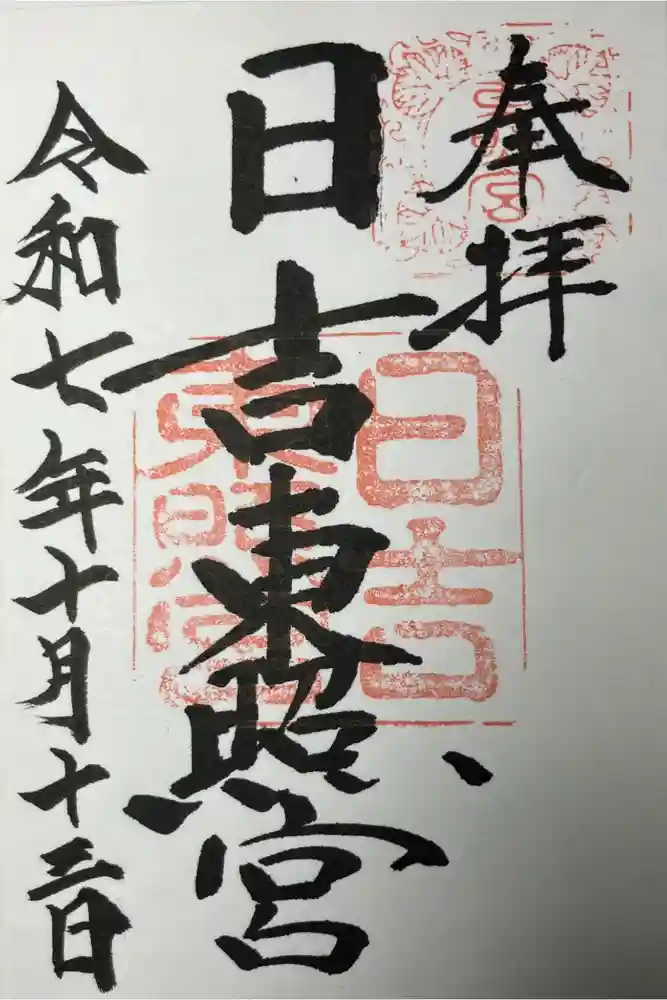 奉拝
日吉東照宮
日吉
東照宮
令和七年十月十三日